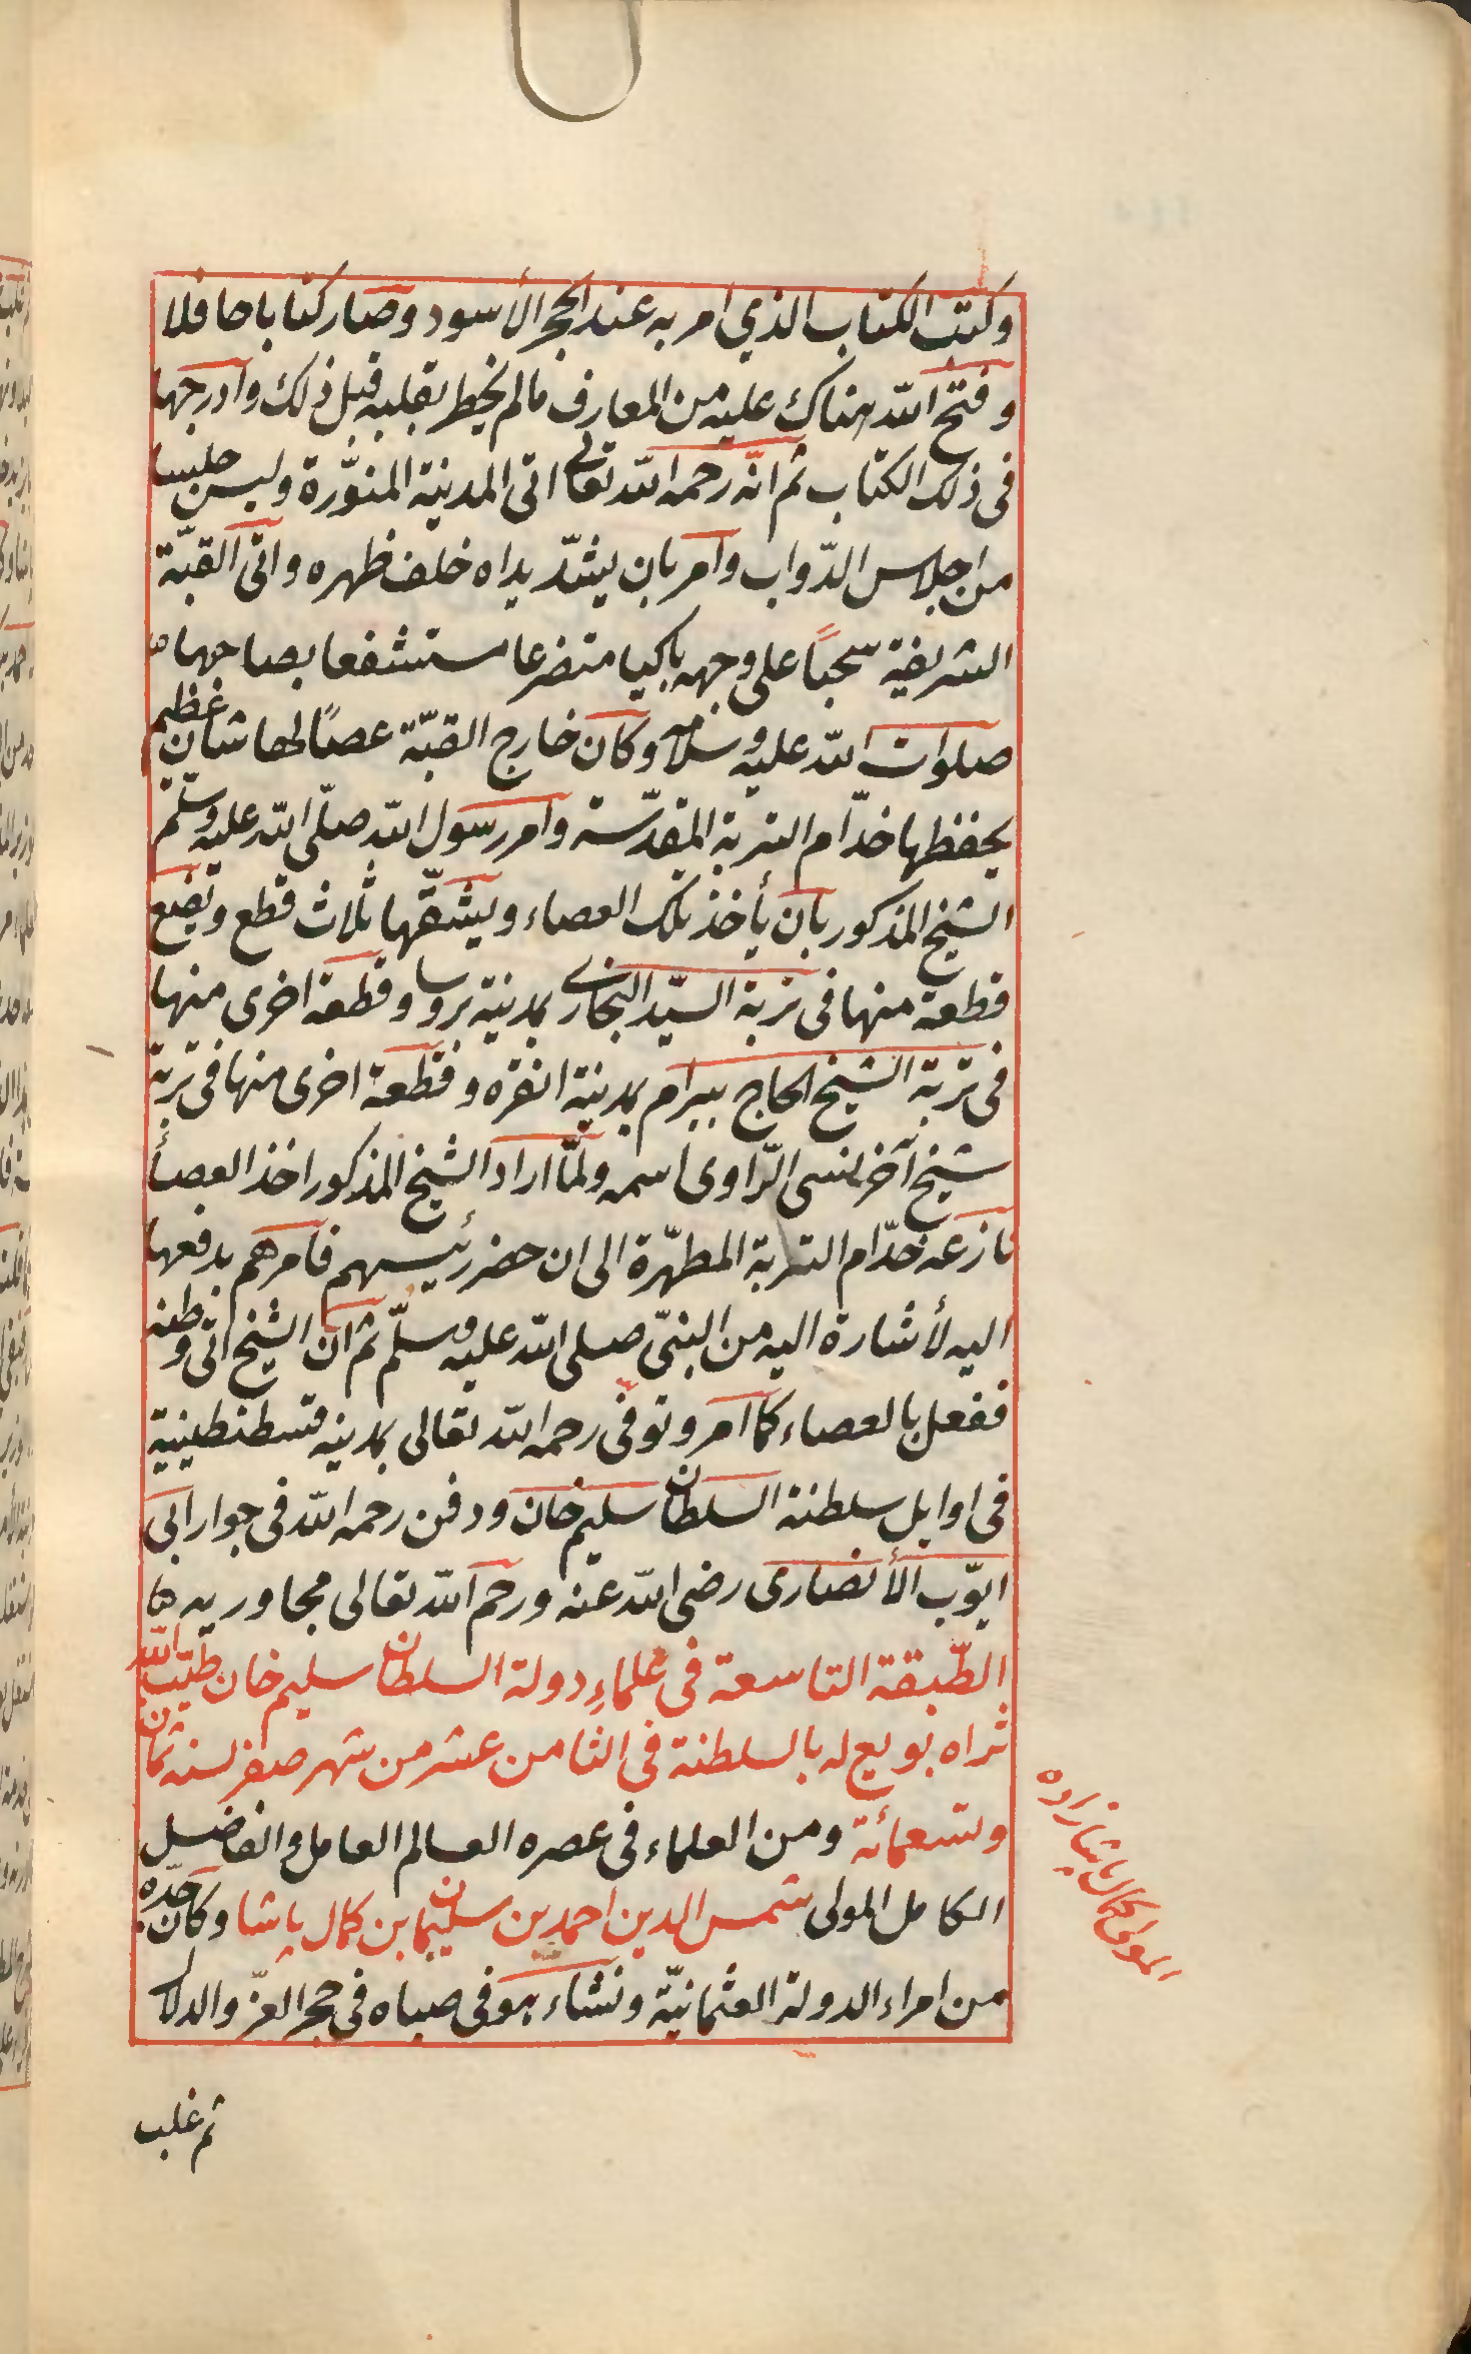 وكتب الكتاب الذي امر به عند الحجر الأسود وصار كتابا حافلا
وفتح الله هناك عليه من المعارف مالم يخطر بقلبه قبل ذلك وادرجها
فى ذلك الكتاب ثم انّه رحمه الله تعالى اتى المدينة المنوّرة ولبس حلسا
من اجلاس الدّواب وامر بان يشدّ يداه خلف ظهره واتى القبّة
الشريفة سحباً على وجهه باكيا متضرعا مستشفعا بصاحبها
صلوات الله عليه وسلامه وكان خارج القبّة عصًا لها شان عظيم
يحفظها خدّام التربة المقدّسة وامر رسول الله صلّى الله عليه وسلّم
الشيخ المذكور بان يأخذ تلك العصاء ويشقّها ثلاث قطع ويضع
قطعة منها فى تربة السيّد البخارى بمدينة بروسا وقطعة اخرى منها
فى تربة الشيخ الحاج بيرام بمدينة انقره وقطعة اخرى منها فى تربة
شيخ آخر نسى الرّاوى اسمه ولمّا اراد الشيخ المذكور اخذ العصأ
نازعه خدّام التربة المطهّرة الى ان حضر رئيسهم فامرهم بدفعها
اليه لأشارة اليه من النبىّ صلى الله عليه وسلّم ثم ان الشيخ اتى وطنه
ففعل بالعصاء كما امر وتوفى رحمه الله تعالى بمدينه قسطنطينية
فى اوايل سلطنة السلطان سليم خان ودفن رحمه الله فى جوار ابى
ايوّب الأنصارى رضى الله عنه ورحم الله تعالى مجاوريه
الطّبقة التاسعة فى علماءِ دولة السلطان سليم خان طيّب الله
ثراه بويع له بالسلطنة فى الثامن عشر من شهر صفر لسنه ثمان
وتسعمائة ومن العلماء فى عصره العالم العامل والفاضل
الكامل المولى شمس الدين احمد بن سليمان بن كمال پاشا وكان جدّه
من امراء الدولة العثمانيّة ونشاء هو فى صباه فى حجر العزّ والدلال
المولى كمال پاشا زاده
ثم غلب